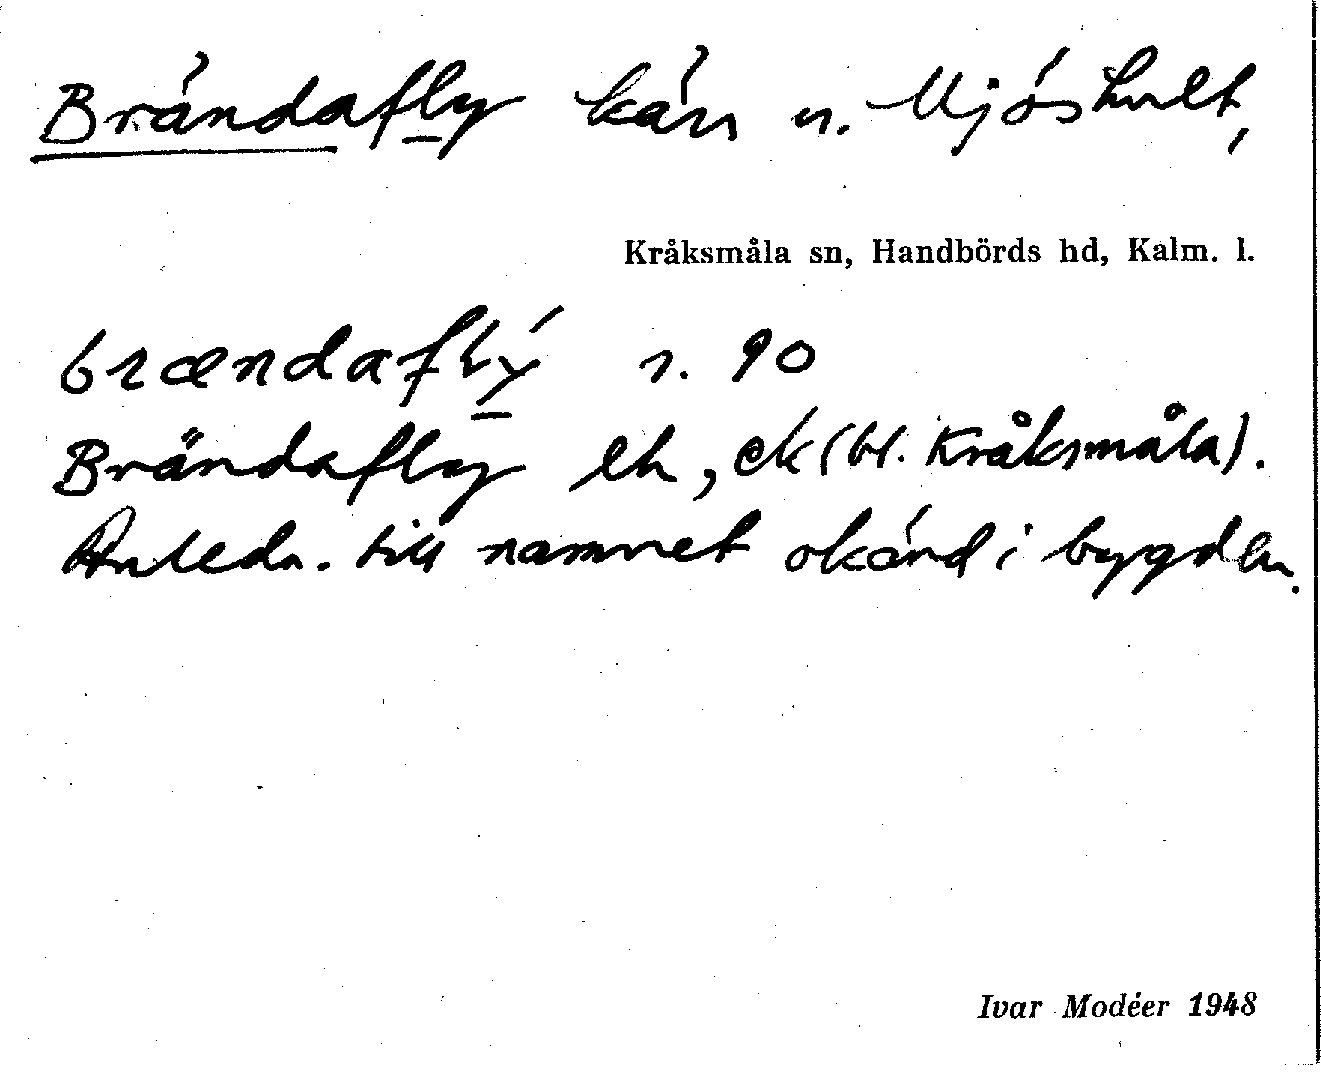 Brändafly kärr n. Mjöshult,
Kråksmåla sn, Handbörds hd, Kalm. l.
brændaflý n. 90
Brändafly eh, ek (bl. Kråksmåla).
Anledn. till namnet okänd i bygden.
Ivar Modéer 1948